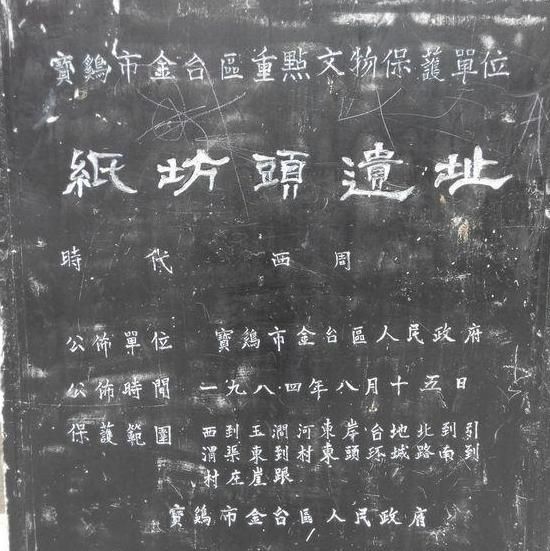 寶鷄市金台區重點文物保護單位
紙坊頭遺址
時代 西周
公佈單位 寶鷄市金台區人民政府
公佈時間 一九八四年八月十五日
保護範圍 西到玉澗河東岸台地北到引
渭渠東到村東頭环城路南到
村庄崖跟
寶鷄市金台區人民政府